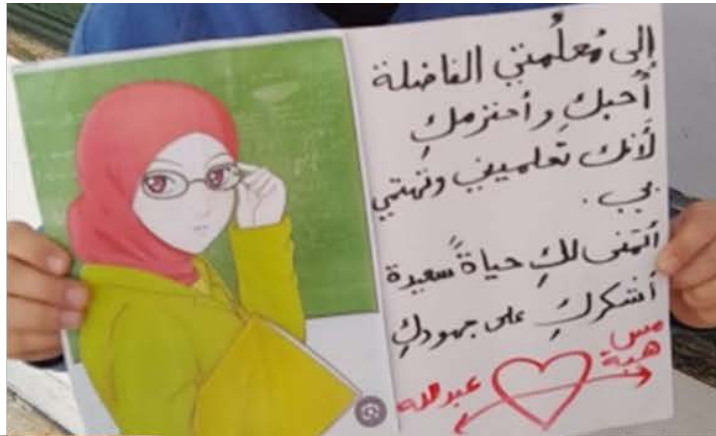 إلى مُعلُمتي الفاضلة
أُحبكِ وأحترمكِ
لأنك تعلميني وتهتمي
بي .
أتمنى لكِ حياةً سعيدة
أشكركِ على جهودكِ
مس
هبة
عبدالله